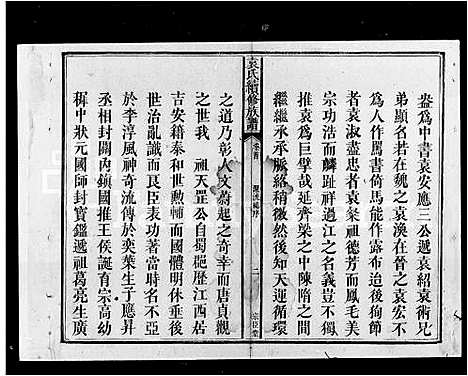 盎爲中書袁安應三公遞袁紹袁術兄
弟顯名若在魏之袁渙在晉之袁宏不
爲人作罵書倚馬能作露布迫後狥節
者袁淑盡忠者袁粲祖德芳而鳳毛美
宗功浩而麟趾祥過江之名義豈不獨
推袁爲巨擘哉延齊梁之中陳隋之間
繼繼承承脈絡稍微然後知天運循環
袁氏續修族譜
卷首
宗臣堂
之道乃彰人文蔚起之奇幸而唐貞觀
之世我 祖天罡公自蜀范歷江西居
吉安籍泰和世勲輔而國體明休垂後
世治亂識而良臣表功著當時殆不亞
於李淳風神奇流傳於奕葉生子應昇
丞相封閣內鎮國推王侯誕育宗高幼
稱中狀元國師封寶鑑遞祖葛亮生廣